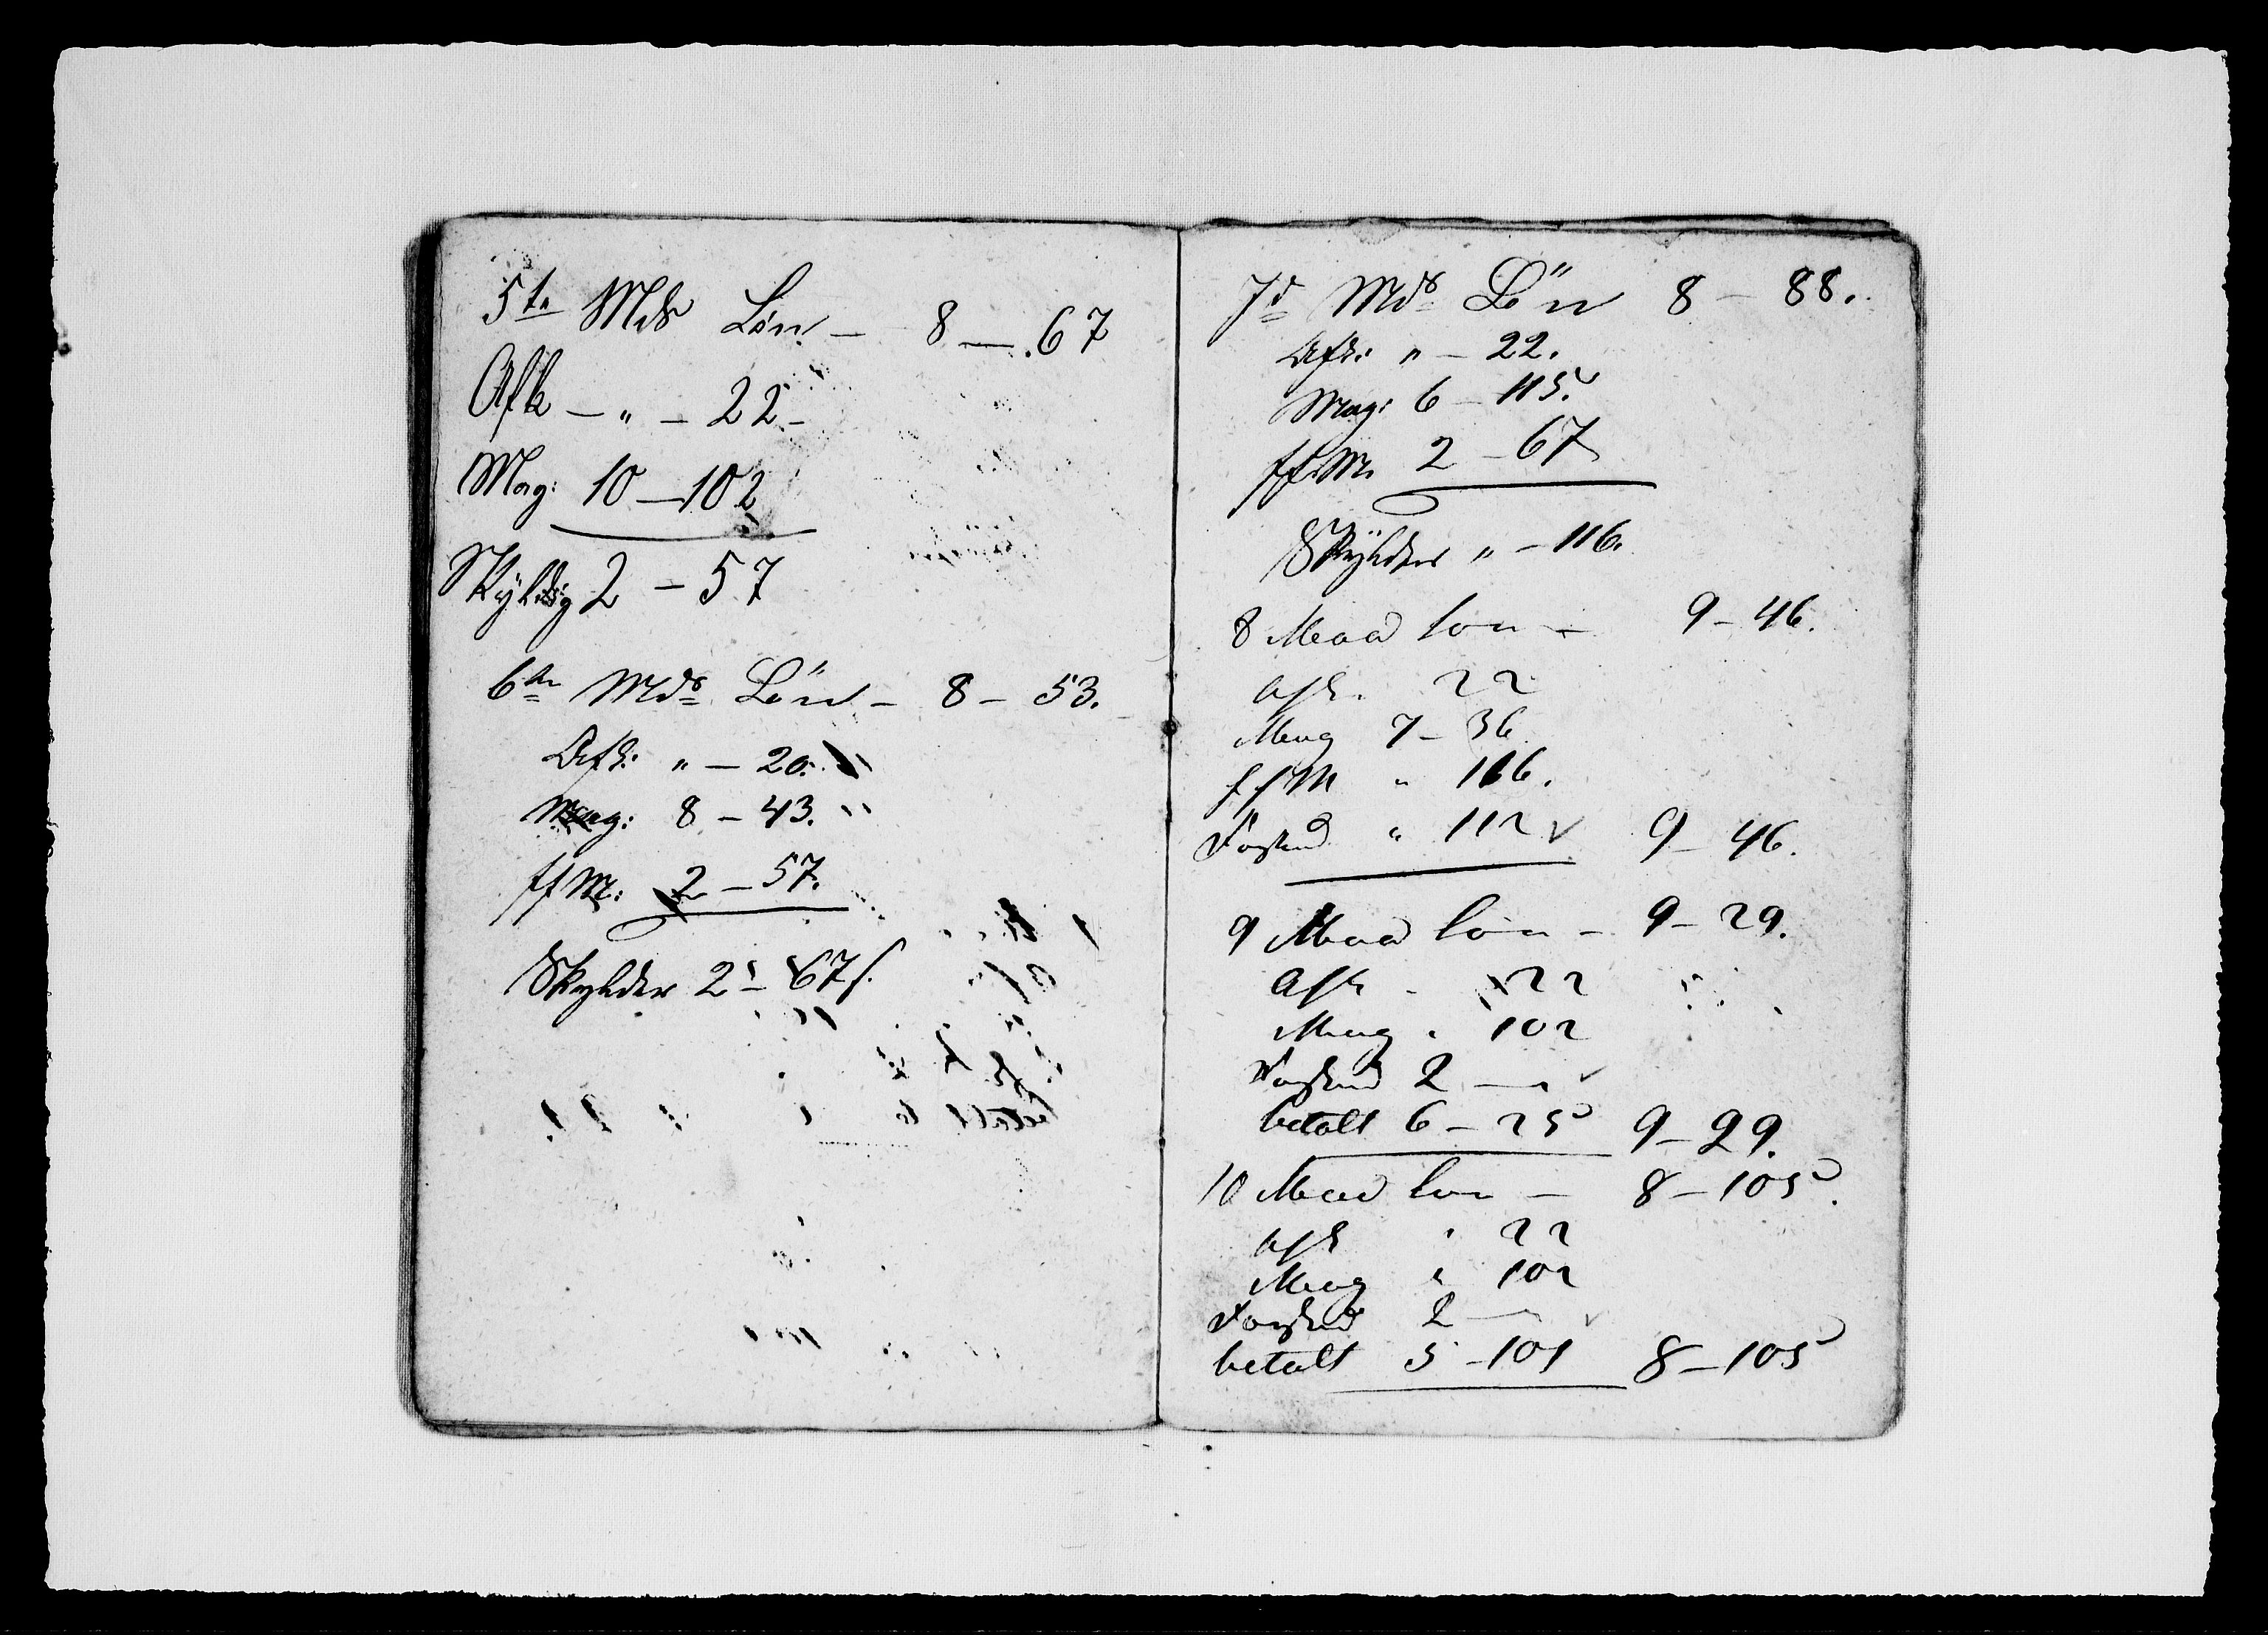 5te Mds Løn — 8 — 67
Afk — " — 22 —
Mag: 10 — 102
Skyldig 2 — 57
6te Mds Løn — 8 — 53.
Afk: " — 20.
Mag: 8 — 43. "
ffM: 2 — 57.
Skylder 2 — 67 f.
7d Mds Løn 8 — 88.
Afk: " — 22.
Mag: 6 — 115.
ffM. 2 — 67
Skylder " — 116.
8 Maad lon — 9 — 46.
Afk. 22
Mag 7 — 36
ffM " 116.
Forskud " 112 9 — 46.
9 Maad lön — 9 — 29.
Afk - 22
Mag " 102
Forskud 2 —
betalt 6 — 25 9 — 29.
10 Maad lon — 8 — 105.
Afk " 22
Mag " 102
Forskud 2 —
betalt 5 — 101 8 — 105